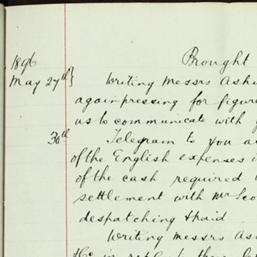 1896 Brought
May 27th} Writing Messrs Ash
again pressing for figur
us to communicate with y
30th Telegram to you a
of the English expenses i
of the cash required
settlement with Mr Sco
despatching & paid.
Writing Messrs As
in reply to their